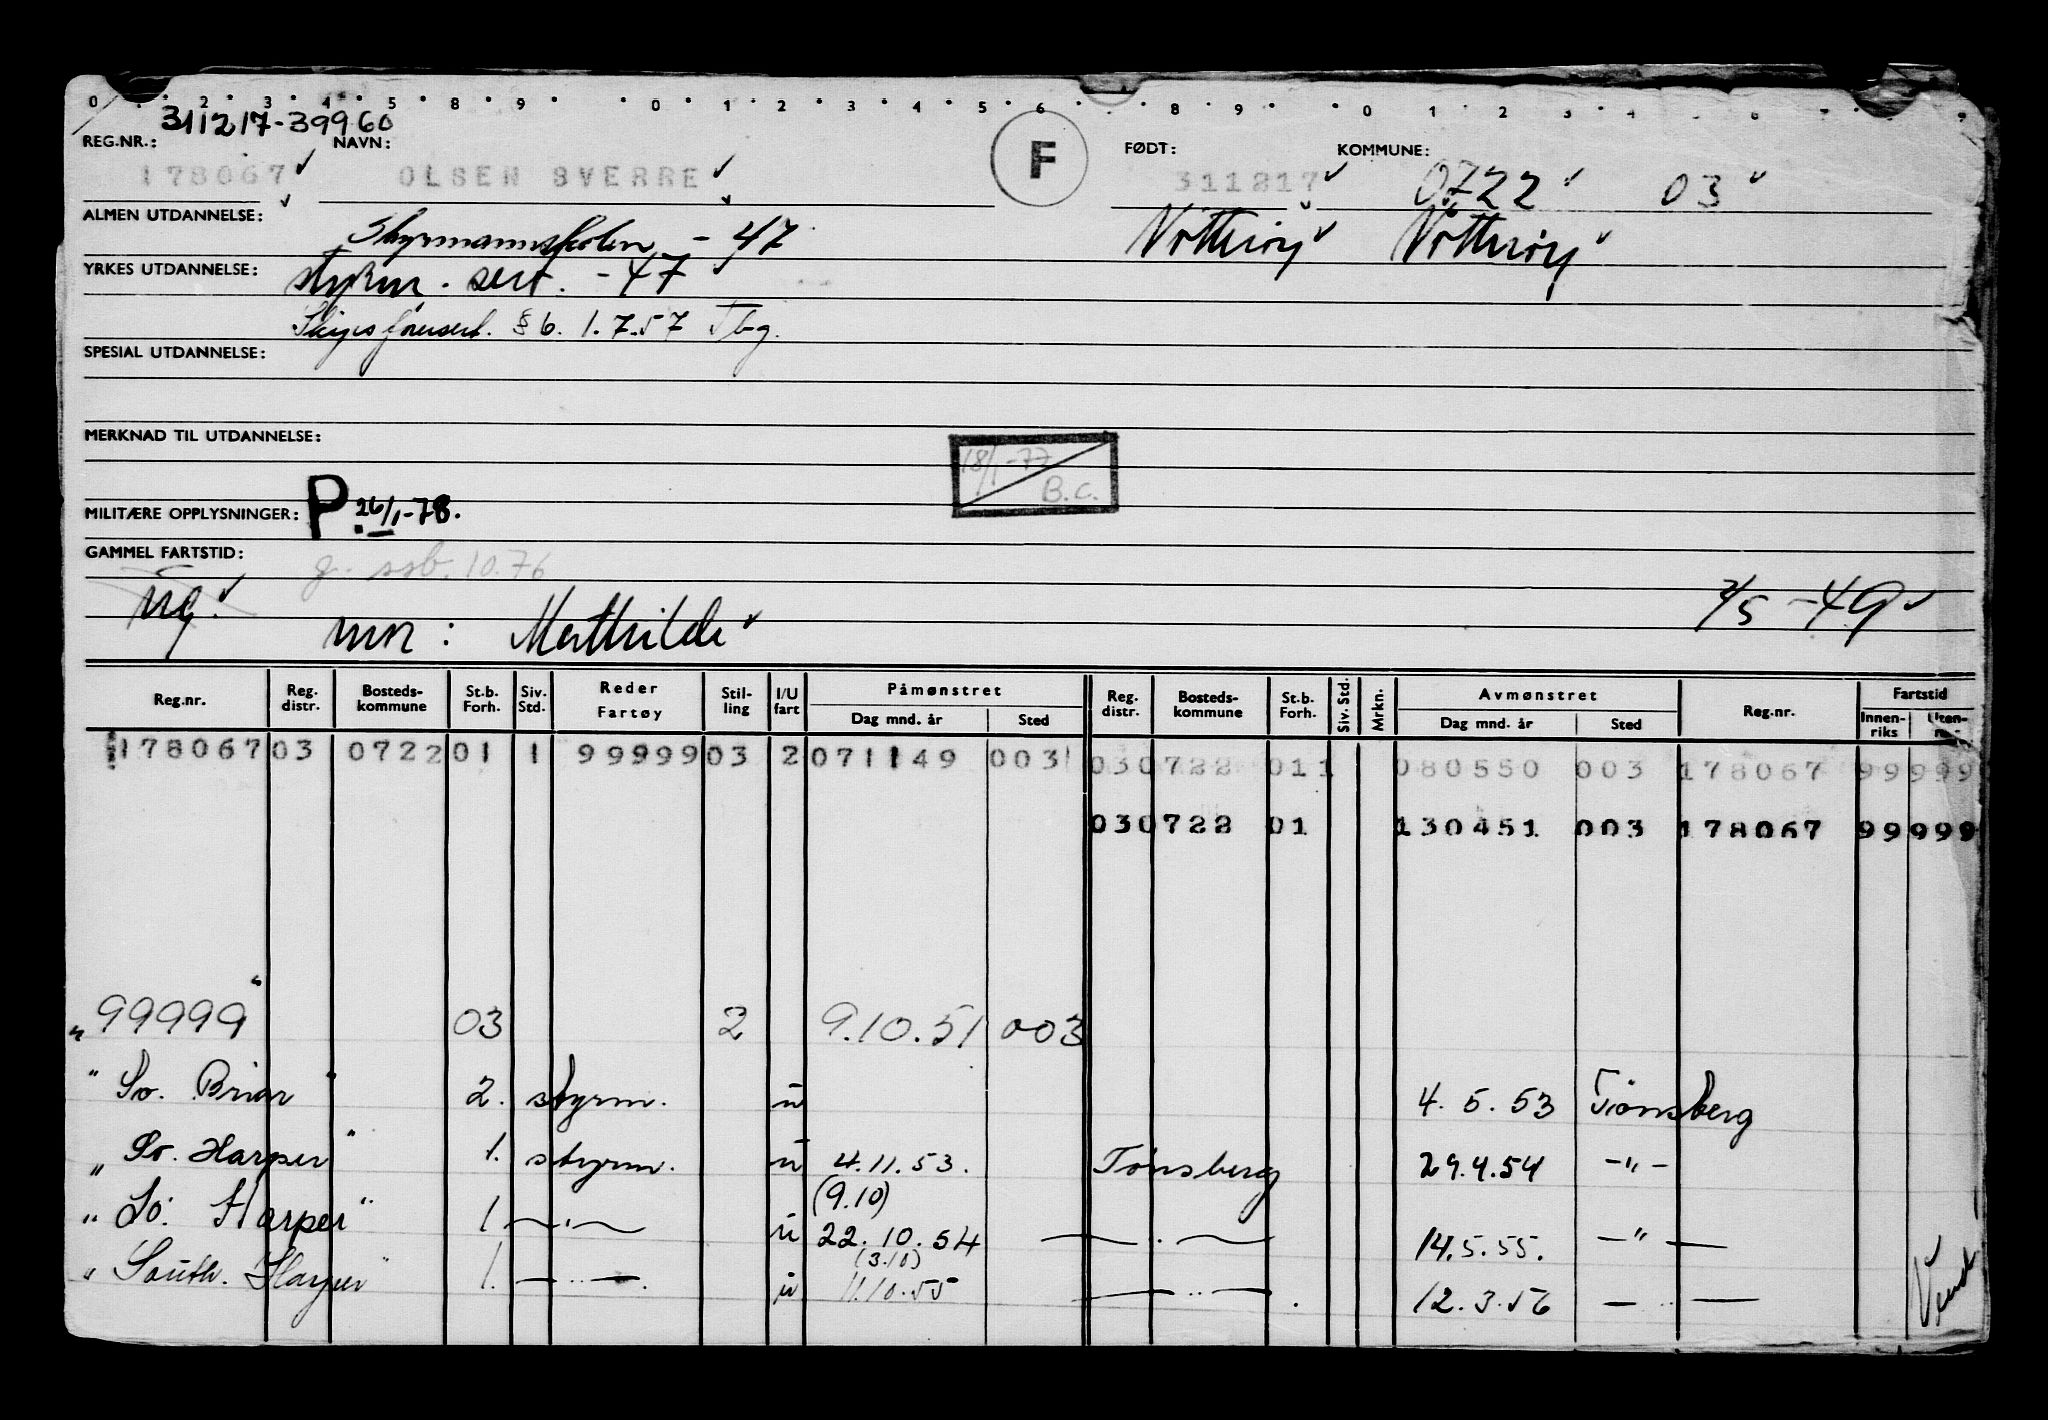 0 2 3 4 5 8 9 0 1 2 3 4 5 6 8 9 0 1 2 3 4
311217-39960
REG.NR.: NAVN: F FØDT: KOMMUNE:
178067 OLSEN SVERRE 311217 0722 03
ALMEN UTDANNELSE: Styrmannsskolen - 47 Nøtterøy Nøtterøy
YRKES UTDANNELSE: styrm. sert. - 47
Skipsførersert. § 6. 1.7.57 Tbg.
SPESIAL UTDANNELSE:
MERKNAD TIL UTDANNELSE:
18/1-77 B.C.
MILITÆRE OPPLYSNINGER: P. 26/1-78.
GAMMEL FARTSTID: g. ssb. 10.76
ug. mn : Mathilde 2/5 -49
Reg.nr. Reg. distr. Bosteds-kommune St.b. Forh. Siv. Std. Reder Fartøy Stil-ling I/U fart Påmønstret Dag mnd. år Sted Reg. distr. Bosteds-kommune St.b. Forh. Siv. Std. Mrkn. Avmønstret Dag mnd. år Sted Reg.nr. Fartstid Innen-riks Uten-
178067 03 0722 01 1 99999 03 2 071149 003 03 0722 01 1 080550 003 178067 99 999
03 0722 01 130451 003 178067 99 999
"99999" 03 2 9.10.51 003
"So. Briar" 2. styrm. u 4.5.53 Tønsberg
"So. Harper" 1. styrm. u 4.11.53. Tønsberg 29.4.54 -"-
(9.10)
"So. Harper" 1 -"- u 22.10.54 -"- 14.5.55. -"-
(3.10)
"South. Harper" 1. -"-. u 11.10.55 -"-. 12.3.56 -"-